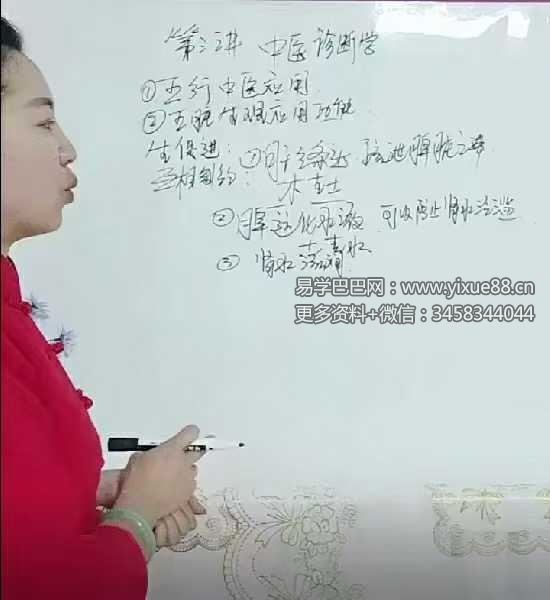 第三讲 中医诊断学
①五行中医应用
②五脏生理应用功能
生促进:①肝主疏达 疏泄脾脏之滞
要相制约: 木克土
②脾运化水液 可以防止肾水泛滥
土克水
③肾水滋
易学巴巴网：www.yixue88.cn
更多资料+微信：3458344044